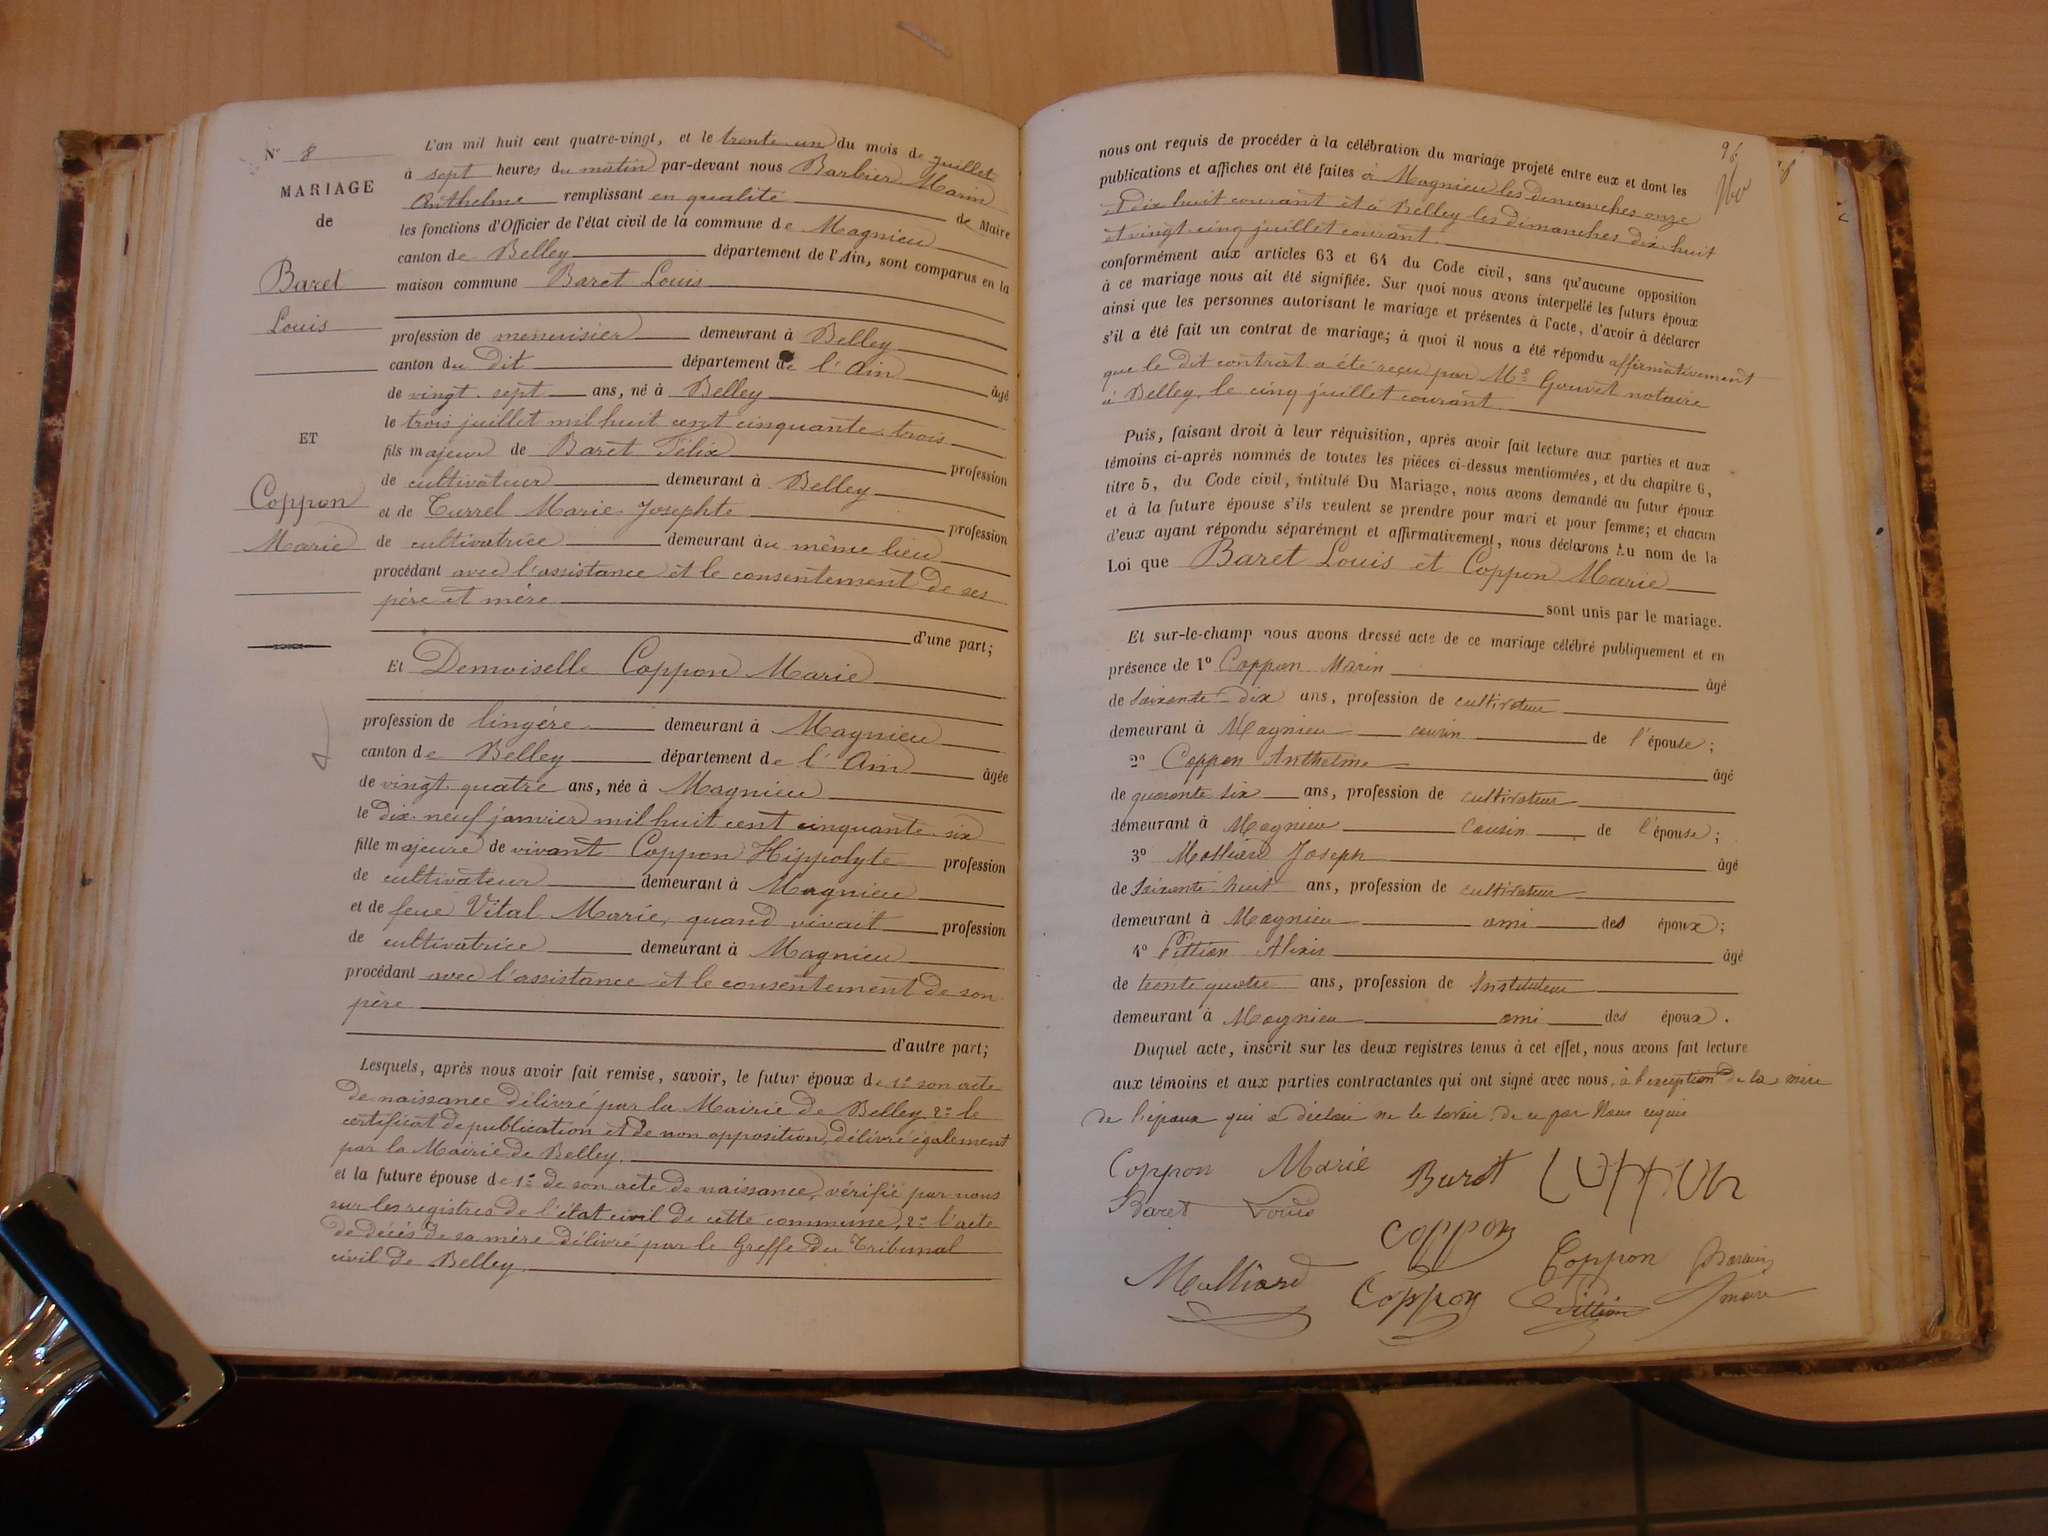 N° 8
MARIAGE
de
Baret
Louis
ET
Coppon
Marie
L'an mil huit cent quatre-vingt, et le trente-un du mois de juillet
à sept heures du matin par-devant nous Barbier Marin
Anthelme remplissant en qualité de Maire
les fonctions d'Officier de l'état civil de la commune de Magnieu
canton de Belley département de l'Ain, sont comparus en la
maison commune Baret Louis
profession de menuisier demeurant à Belley
canton du Dit département de l'Ain âgé
de vingt-sept ans, né à Belley
le trois juillet mil huit cent cinquante-trois
fils majeur de Baret Félix profession
de cultivateur demeurant à Belley
et de Turrel Marie-Josephte profession
de cultivatrice demeurant au même lieu
procédant avec l'assistance et le consentement de ses
père et mère
d'une part;
Et Demoiselle Coppon Marie
profession de lingère demeurant à Magnieu
canton de Belley département de l'Ain âgée
de vingt-quatre ans, née à Magnieu
le dix-neuf janvier mil huit cent cinquante-six
fille majeure de vivant Coppon Hippolyte profession
de cultivateur demeurant à Magnieu
et de feue Vital Marie, quand vivait profession
de cultivatrice demeurant à Magnieu
procédant avec l'assistance et le consentement de son
père
d'autre part;
Lesquels, après nous avoir fait remise, savoir, le futur époux de 1° son acte
de naissance délivré par la Mairie de Belley 2° le
certificat de publication et de non opposition, délivré également
par la Mairie de Belley.
et la future épouse de 1° de son acte de naissance, vérifié par nous
sur les registres de l'état civil de cette commune, 2° l'acte
de décès de sa mère délivré par le Greffe du Tribunal
civil de Belley.
96
nous ont requis de procéder à la célébration du mariage projeté entre eux et dont les
publications et affiches ont été faites à Magnieu les dimanches onze
et dix huit courant et à Belley les dimanches dix-huit
et vingt-cinq juillet courant.
conformément aux articles 63 et 64 du Code civil, sans qu'aucune opposition
à ce mariage nous ait été signifiée. Sur quoi nous avons interpellé les futurs époux
ainsi que les personnes autorisant le mariage et présentes à l'acte, d'avoir à déclarer
s'il a été fait un contrat de mariage; à quoi il nous a été répondu affirmativement
que le dit contrat a été reçu par Me Gouvet notaire
à Belley, le cinq juillet courant.
Puis, faisant droit à leur réquisition, après avoir fait lecture aux parties et aux
témoins ci-après nommés de toutes les pièces ci-dessus mentionnées, et du chapitre 6,
titre 5, du Code civil, intitulé Du Mariage, nous avons demandé au futur époux
et à la future épouse s'ils veulent se prendre pour mari et pour femme; et chacun
d'eux ayant répondu séparément et affirmativement, nous déclarons Au nom de la
Loi que Baret Louis et Coppon Marie
sont unis par le mariage.
Et sur-le-champ nous avons dressé acte de ce mariage célébré publiquement et en
présence de 1° Coppon Marin âgé
de soixante-dix ans, profession de cultivateur
demeurant à Magnieu cousin de l'épouse;
2° Coppon Anthelme âgé
de quarante six ans, profession de cultivateur
demeurant à Magnieu cousin de l'épouse;
3° Joseph âgé
de soixante-huit ans, profession de cultivateur
demeurant à Magnieu ami des époux;
4° Pittion Alexis âgé
de trente quatre ans, profession de Instituteur
demeurant à Magnieu ami des époux.
Duquel acte, inscrit sur les deux registres tenus à cet effet, nous avons fait lecture
aux témoins et aux parties contractantes qui ont signé avec nous, à l'exception de la mère
de l'époux qui a déclaré ne le savoir de ce par Nous requis
Coppon Marie Baret
Baret Louis
Coppon
Coppon
Coppon
Pittion
maire